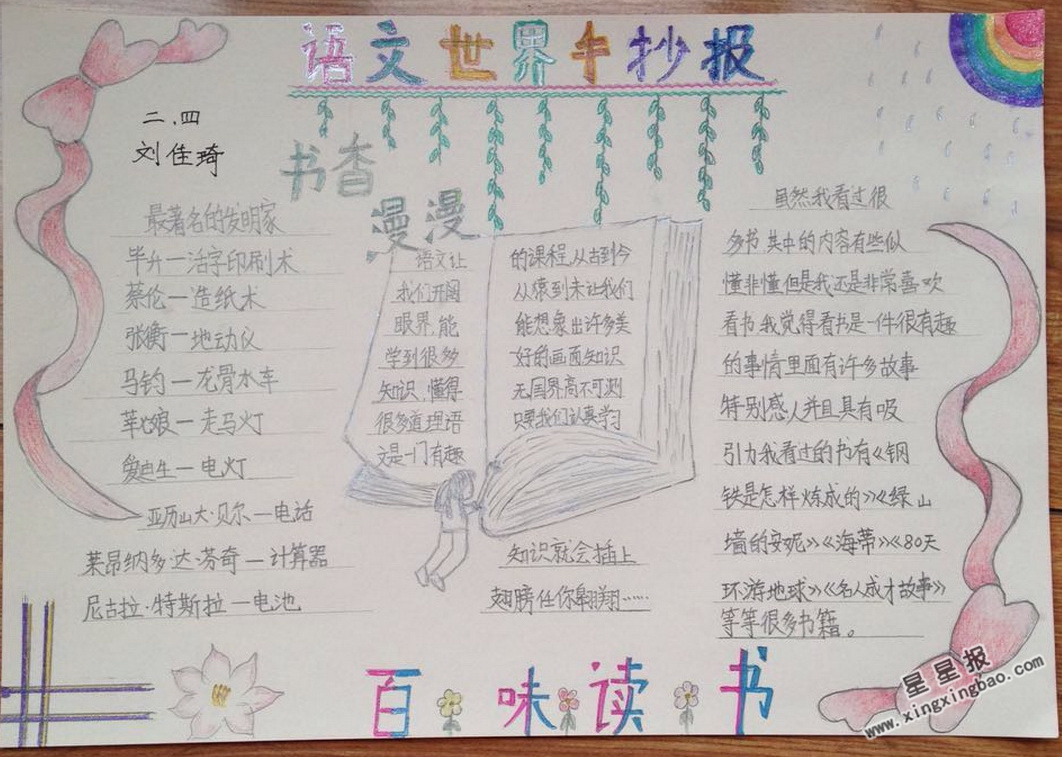 语文世界手抄报
二.四
刘佳琦
书香
漫漫
最著名的发明家
毕升一活字印刷术
蔡伦一造纸术
张衡一地动仪
马钧一龙骨水车
一走马灯
爱迪生一电灯
亚历山大·贝尔一电话
莱昂纳多·达·芬奇一计算器
尼古拉·特斯拉一电池
语文让
我们开阔
眼界,能
学到很多
知识,懂得
很多道理语
文是一门有趣
的课程,从古到今
从猿到未让我们
能想象出许多美
好的画面知识
无国界高不可测
只要我们认真学习
知识就会插上
翅膀任你翱翔……
虽然我看过很
多书,其中的内容有些似
懂非懂但是我还是非常喜欢
看书,我觉得看书是一件很有趣
的事情里面有许多故事
特别感人并且具有吸
引力我看过的书有《钢
铁是怎样炼成的》《绿山
墙的安妮》《海蒂》《80天
环游地球》《名人成才故事》
等等很多书籍。
百味读书
星星报
www.xingxingbao.com